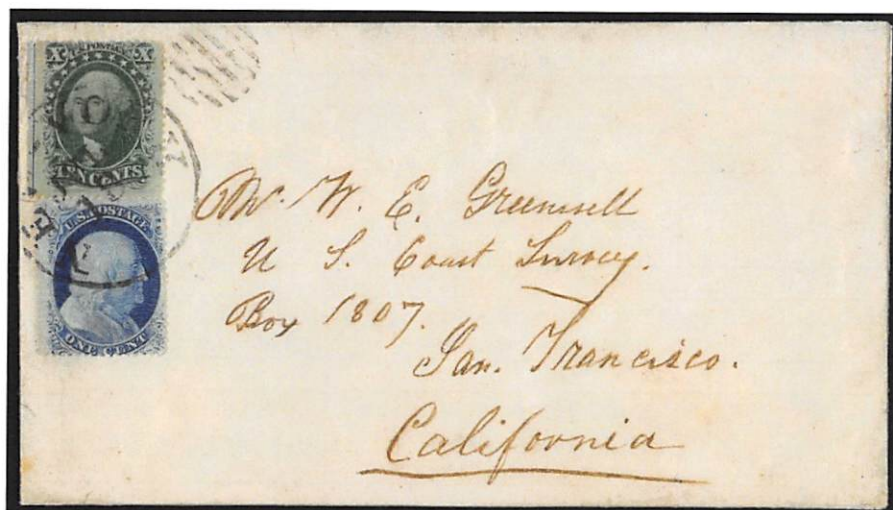 U.S. POSTAGE
X X
TEN CENTS
U.S. POSTAGE
ONE CENT
Mr. W. E. Greenwell
U S. Coast Survey.
Box 1807.
San. Francisco.
California